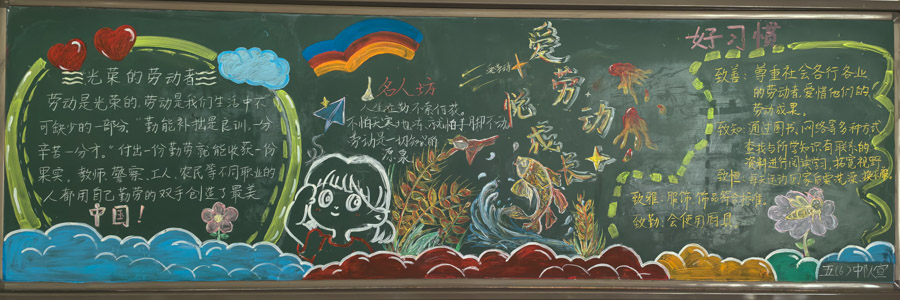 光荣的劳动者
劳动是光荣的,劳动是我们生活中不
可缺少的一部分,“勤能补拙是良训,一分
辛苦一分才。”付出一份勤劳就能收获一份
果实。教师、警察、工人、农民等不同职业的
人都用自己勤劳的双手创造了最美
中国!
名人坊
人生在勤不索何获
不怕天寒地冻,就怕手脚不动
劳动是一切知识的
源泉
爱劳动
悦成长
好习惯
致善:尊重社会各行各业
的劳动者,爱惜他们的
劳动成果。
致知:通过图书、网络等多种方式
查找与所学知识有联系的
资料进行阅读学习,拓宽视野
致恒:每天运动
致雅:服饰
致勤:会使用厨具
五(6)中队宣